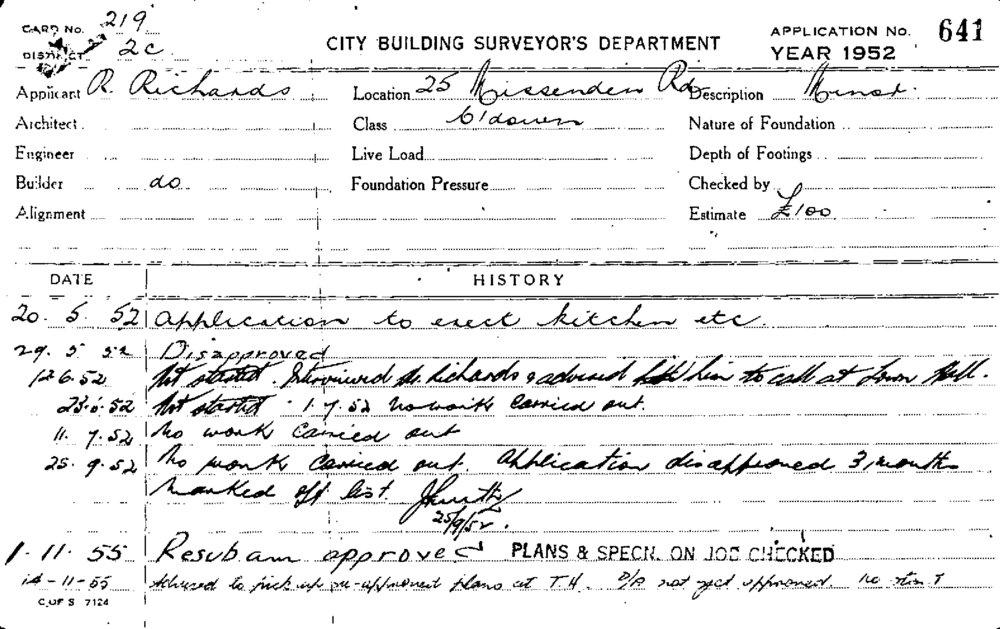 CARD No. 219
DISTRICT 2c
CITY BUILDING SURVEYOR'S DEPARTMENT
APPLICATION No. 641
YEAR 1952
Applicant R. Richards Location 25 Missenden Rd Description Minor.
Architect Class C'down Nature of Foundation
Engineer Live Load Depth of Footings
Builder do Foundation Pressure Checked by
Alignment Estimate £100
DATE HISTORY
20. 5. 52 Application to erect kitchen etc
29. 5 52 Disapproved
12 6. 52 Not started. Interviewed Mr. Richards & advised him to call at Town Hall.
23.6.52 Not started 1. 7. 52 no work carried out.
11. 7. 52 No work carried out
25. 9. 52 No work carried out. Application disapproved 3 months
marked off list.
25/9/52.
1. 11. 55 Resub am approved PLANS & SPECN. ON JOB CHECKED
14-11-55 Advised to pick up plans at T.H. not yet approved. no
C. OF S 7124